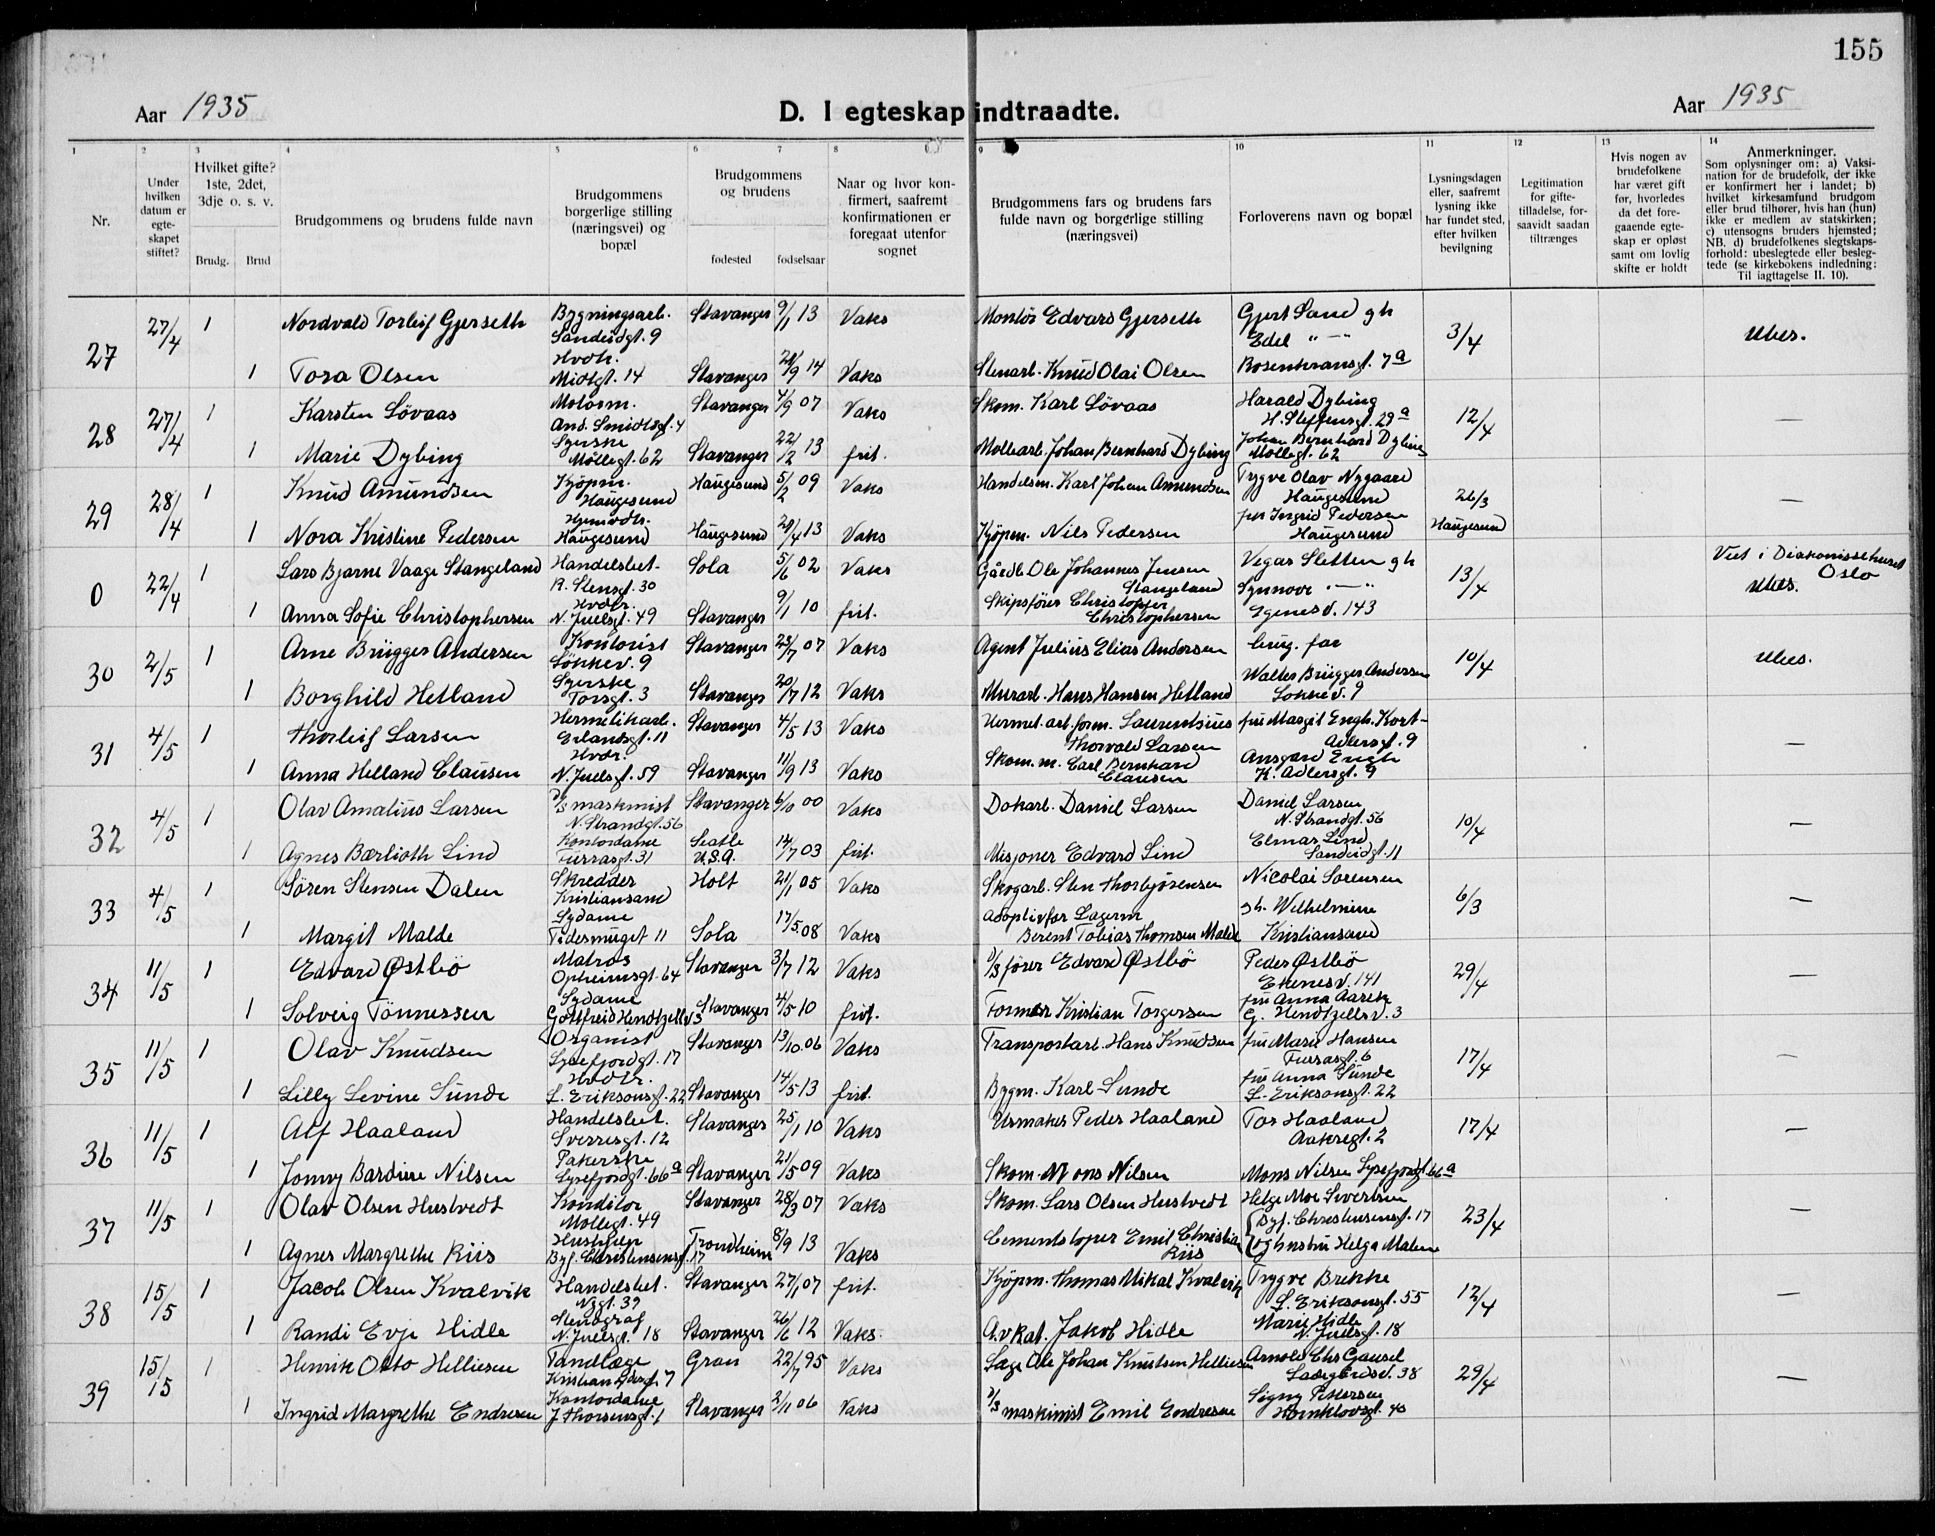 155
Aar 1935
D. I egteskap indtraadte.
Aar 1935
1 2 3 4 5 6 7 8 9 10 11 12 13 14
Nr.
Under hvilken datum er egteskapet stiftet?
Hvilket gifte? 1ste, 2det, 3dje o. s. v.
Brudg. Brud
Brudgommens og brudens fulde navn
Brudgommens borgerlige stilling (næringsvei) og bopæl
Brudgommens og brudens
fødested fødselsaar
Naar og hvor konfirmert, saafremt konfirmationen er foregaat utenfor sognet
Brudgommens fars og brudens fars fulde navn og borgerlige stilling (næringsvei)
Forloverens navn og bopæl
Lysningsdagen eller, saafremt lysning ikke har fundet sted, efter hvilken bevilgning
Legitimation for giftetilladelse, forsaavidt saadan tiltrænges
Hvis nogen av brudefolkene har været gift før, hvorledes da det foregaaende egteskap er opløst samt om lovlig skifte er holdt
Anmerkninger.
Som oplysninger om: a) Vaksination for de brudefolk, der ikke er konfirmert her i landet; b) hvilket kirkesamfund brudgom eller brud tilhører, hvis han (hun) ikke er medlem av statskirken; c) utensogns bruders hjemsted; NB. d) brudefolkenes slegtskapsforhold: ubeslegtede eller beslegtede (se kirkebokens indledning: Til iagttagelse II. 10).
27 27/4 1 Nordvald Torleif Gjerseth Bygningsarb. Sandeidgt. 9 Stavanger 9/1 13 Vaks Montør Edvard Gjerseth Gjert Sand gh 3/4 Ubes.
Edel " — "
1 Tora Olsen Hvdtr. Midtgt. 14 Stavanger 14 Vaks Stenarb. Knud Olai Olsen Rosenkransgt. 7a
28 27/4 1 Karsten Lövaas Stavanger 4/9 07 Vaks Skom. Karl Lövaas Harald Dybing H. Steffensgt. 29a 12/4 —
And. Smidtsgt. 4
1 Marie Dybing Syerske Möllegt. 62 Stavanger 22/2 13 frit. Mollearb. Johan Bernhard Dybing Johan Bernhard Dybing Möllegt. 62
29 28/4 1 Knud Amundsen Kjöpm. Haugesund Haugesund 5/2 09 Vaks Handelsm. Karl Johan Amundsen Trygve Olav Nygaard Haugesund 26/3 Haugesund —
1 Nora Kristine Pedersen Haugesund Haugesund 13 Vaks Kjöpm. Nils Pedersen frk Ingrid Pedersen Haugesund
0 22/4 1 Lars Bjarne Vaage Stangeland Handelsbet. R. Stensgt. 30 Sola 5/6 02 Vaks Gårdb. Ole Johannes Jensen Stangeland Vegar Sletten gh 13/4 Viet i Diakonissehuset Oslo Ubes.
1 Anna Sofie Christophersen Hvdtr. N. Juelsgt. 49 Stavanger 9/1 10 frit. Skipsfører Christopher Christophersen Synnove — " Egenesv. 143
30 2/5 1 Arne Brügger Andersen Kontorist Lökkev. 9 Stavanger 07 Vaks Agent Julius Elias Andersen brug. far 10/4 Ubes.
1 Borghild Hetland Syerske Torsgt. 3 Stavanger 20/7 12 Vaks Murarb. Hans Hansen Hetland Walter Brügger Andersen Lökkev. 9
31 4/5 1 Thorleif Larsen Hermetikarb. Erlandsgt. 11 Stavanger 4/5 13 Vaks Hermet. arb. form. Laurentsius Thorvald Larsen fru Margit Engh. Kort-Adlersgt. 9 —
1 Anna Helland Clausen Hvdtr. N. Juelsgt. 59 Stavanger 11/9 13 Vaks Skom. m. Carl Bernhard Clausen Ansgard Engh K. Adlersgt. 9
32 4/5 1 Olav Amalius Larsen D/S maskinist N. Strandgt. 56 Stavanger 6/10 00 Vaks Dokarb. Daniel Larsen Daniel Larsen N. Strandgt. 56 10/4 —
1 Agnes Lind Kontordame 31 Seatle U.S.A. 14/7 03 frit. Misjoner Edvard Lind Elmar Lind Sandeidgt. 11
33 4/5 1 Sören Stensen Dalen Skredder Kristiansand Holt 21/1 05 Vaks Skogarb. Sten Thorbjörensen Nicolai Sorensen 6/3 —
1 Margit Malde Sydame 11 Sola 17/5 08 Vaks adoptivfar Lagerm Berent Tobias Thomsen Malde gh. Wilhelmine Kristiansand
34 11/5 1 Edvard Østbö Matros Opheimsgt. 64 Stavanger 3/7 12 Vaks D/S fører Edvard Østbö Peder Østbö 141 29/4 —
1 Solveig Tönnessen Sydame Stavanger 4/5 10 frit. Former Kristian Torgersen fru Anna 3
35 11/5 1 Olav Knudsen Organist Lysefjordgt. 17 Stavanger 13/10 06 Vaks Transportarb. Hans Knudsen fru Marie Hansen 6 17/4 —
1 Lilly Levine Sunde Hvdtr. L. Eriksonsgt. 22 Stavanger 14/5 13 frit. Bygm. Karl Sunde fru Anna Sunde L. Eriksonsgt. 22
36 11/5 1 Alf Haaland Handelsbet. Sverresgt. 12 Stavanger 25/1 10 Vaks Urmaker Peder Haaland Tor Haaland Aakregt. 2 17/4 —
1 Jonny Bardine Nilsen Pakerske Lysefjordgt. 66a Stavanger 21/5 09 Vaks Skom. Mons Nilsen Mons Nilsen Lysefjordgt. 66a
37 11/5 1 Olav Olsen Hustvedt Konditor Möllegt. 49 Stavanger 28/3 07 Vaks Skom. Lars Olsen Hustvedt Helge Moe Sivertsen Byf. Christensensgt. 17 23/4 —
1 Agnes Margrethe Riis Hushjelp Byf. Christensensgt. 17 Trondheim 8/9 13 Vaks Cementstoper Emil Christian Riis og hustru Helga Malene
38 15/5 1 Jacob Olsen Kvalvik Handelsbet. Nygt. 39 Stavanger 27/1 07 frit. Kjöpm. Thomas Mikal Kvalvik Trygve Brekke L. Eriksonsgt. 55 12/4 —
1 Randi Evje Hidle Stenograf N. Juelsgt. 18 Stavanger 26/6 12 Vaks. Advkat. Jakob Hidle Marie Hidle N. Juelsgt. 18
39 15/5 1 Henrik Otto Helliesen Tandlæge 7 Gran 22/7 95 Vaks Læge Ole Johan Knutsen Helliesen Arnold Chr Gausel Ladegårdsv. 38 29/4 —
1 Ingrid Margrethe Endresen Kontordame J. Thorsensgt. 1 Stavanger 2/11 06 Vaks D/S maskinist Emil Endresen Signy Pettersen Hornklovsgt. 40